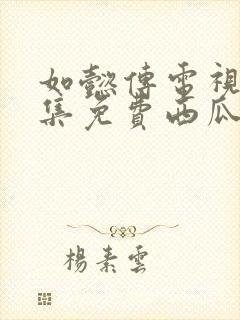 如懿傳電視
集免費西瓜
楊素雲